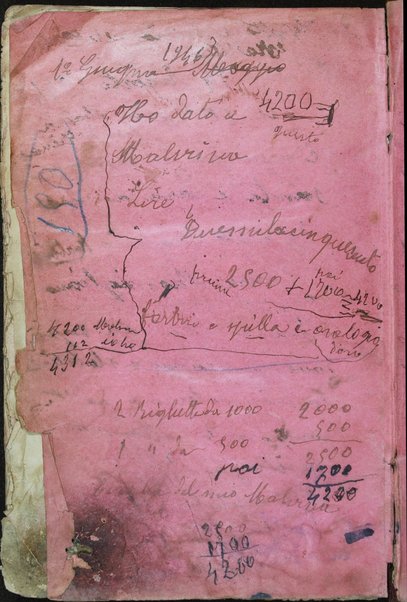 1946
1° Giugno Maggio
Ho dato a 4200
questo
Malvina
Lire
Duemilacinquecento
prima 2500 + poi 1700 = 4200
e spilla e orologio
d'oro
150
4200 Malvina
112
4312
2 Biglietti da 1000 2000
1 " da 500 500
2500
poi 1700
4200
del mio Malvina
2500
1700
4200